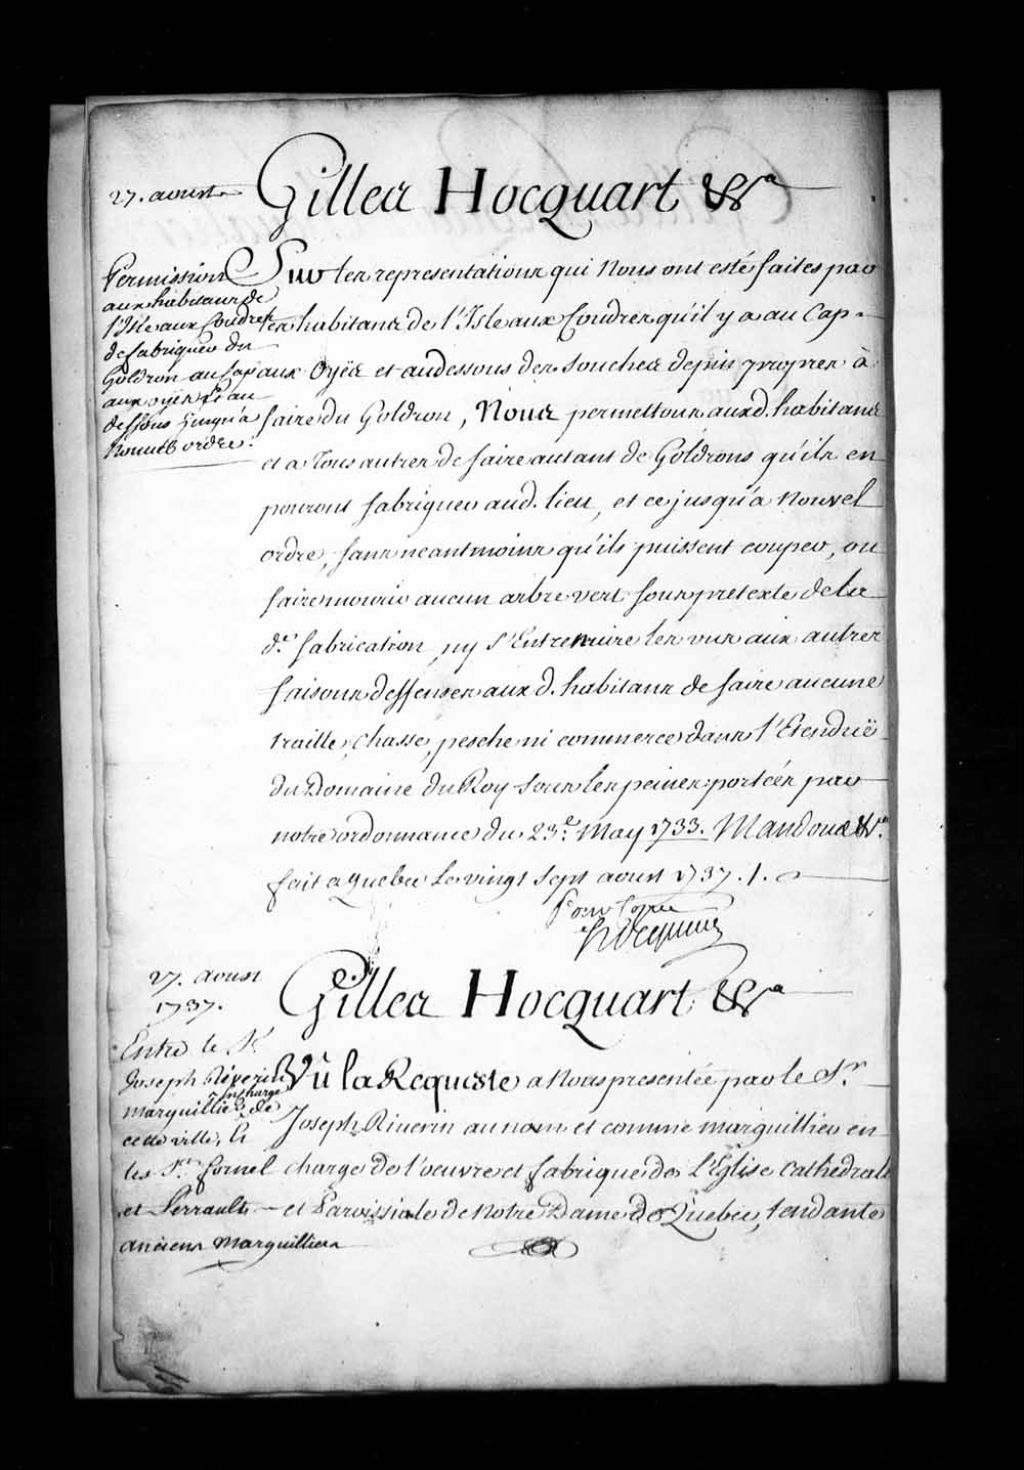 27. aoust
Gilles Hocquart &ra
Permission
aux habitans de
l'Isle aux Coudres
de fabriquer du
Goldron au Cap
aux oyes et au
dessous jusqu'a
Nouvel ordre.
Sur les representations qui Nous ont esté faites par
les habitans de l'Isle aux Coudres qu'il y a au Cap
aux Oyës et audessous des souches de pin propres à
faire du Goldron, Nous permettons aux d. habitans
et a Tous autres de faire autant de Goldrons qu'ils en
pouront fabriquer aud. lieu, et ce jusqu'a nouvel
ordre, sans neantmoins qu'ils puissent couper, ou
faire mourir aucun arbre vert sous pretexte de la
de. fabrication, ny s'Entrenuire les uns aux autres
faisons deffenses aux d. habitans de faire aucune
traitte, chasse, pesche ni commerce dans l'Etenduë
du Domaine du Roy sous les peines portées par
notre ordonnance du 23e. May 1733. Mandons &ra.
fait a Quebec Le vingt sept aoust 1737. /.
Pour Copie
Hocquart
27. Aoust
1737.
Gilles Hocquart &ra
Entre le Sr.
Joseph Riverin
marguillier en charge de
cette ville, Et
les Srs. fornel
et Perrault
anciens Marguilliers
Vû la Requeste a Nous presentée par le Sr.
Joseph Riverin au nom et comme marguillier en
charge de l'oeuvre et fabrique de L'Eglise Cathedrale
et Paroissiale de Notre Dame de Quebec, tendante